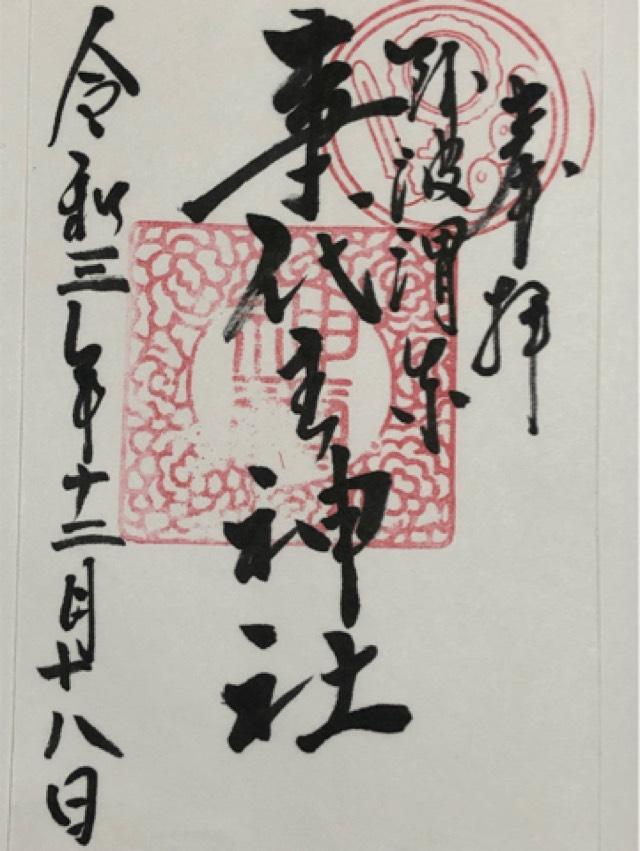 奉拝
阿波渭東
事代主神社
令和三年十二月十八日